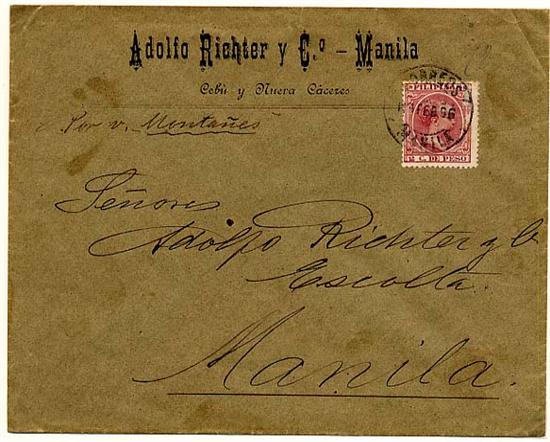 Adolfo Richter y C.º – Manila
Cebú y Nueva Cáceres
Por v. Montañés
CORREOS
FEB 96
MANILA
FILIPINAS
2 C. DE PESO
Señores
Adolfo Richter y Co
Escolta.
Manila.